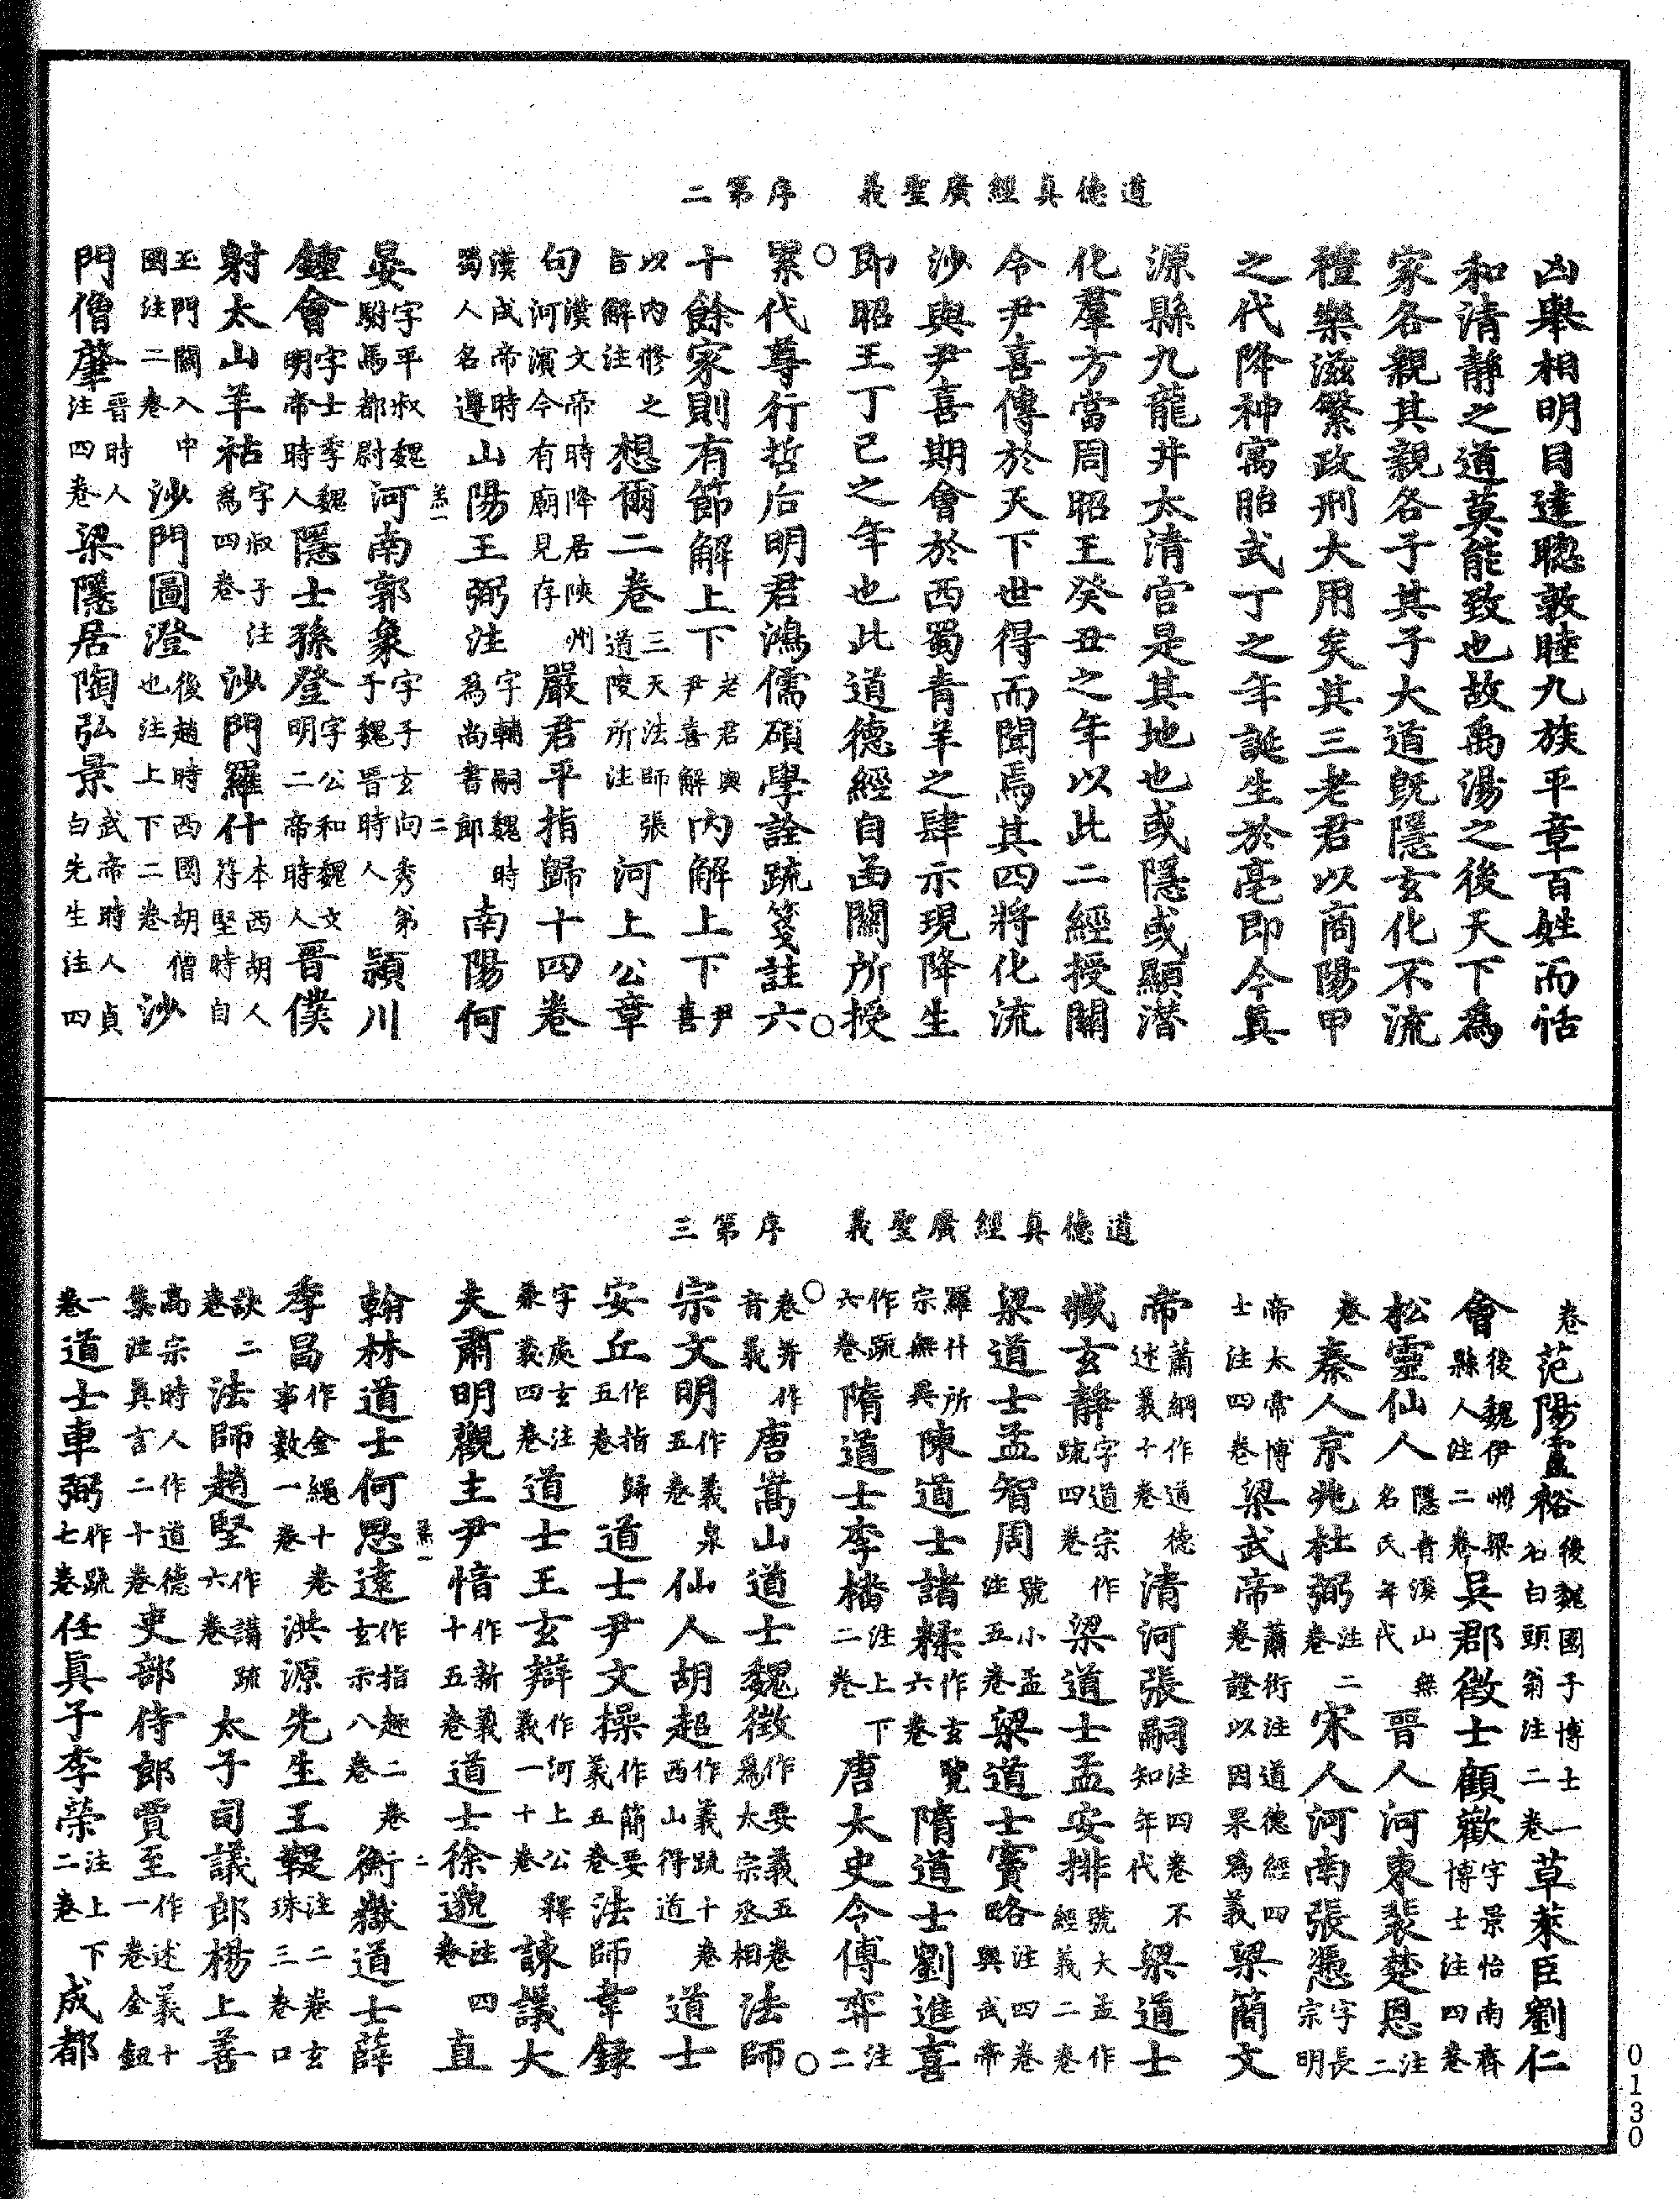 道德真經廣聖義　序第二
凶舉相明目達聰敦睦九族平章百姓而恬
和清靜之道莫能致也故禹湯之後天下為
家各親其親各子其子大道既隱玄化不流
禮樂滋繁政刑大用矣其三老君以商陽甲
之代降神寓胎武丁之年誕生於亳即今真
源縣九龍井太清宮是其地也或隱或顯潛
化羣方當周昭王癸丑之年以此二經授關
令尹喜傳於天下世得而聞焉其四將化流
沙與尹喜期會於西蜀青羊之肆示現降生
即昭王丁巳之年也此道德經自函關所授
○累代尊行哲后明君鴻儒碩學詮疏箋註六○
十餘家則有節解上下老君與尹喜解內解上下尹喜
以內修之旨解注想爾二卷三天法師張道陵所注河上公章
句漢文帝時降居陝州河濱今有廟見存嚴君平指歸十四卷
漢成帝時蜀人名遵山陽王弼注字輔嗣魏時為尚書郎南陽何
羔一　二
晏字平叔魏駙馬都尉河南郭象字子玄向秀第子魏晉時人潁川
鍾會字士季魏明帝時人隱士孫登字公和魏文明二帝時人晉僕
射太山羊祜字叔子注為四卷沙門羅什本西胡人符堅時自
玉門關入中國注二卷沙門圖澄後趙時西國胡僧也注上下二卷沙
門僧肇晉時人注四卷梁隱居陶弘景武帝時人貞白先生注四
道德真經廣聖義　序第三
卷范陽盧裕後魏國子博士一名白頭翁注二卷草萊臣劉仁
會後魏伊州梁縣人注二卷吳郡徵士顧歡字景怡南齊博士注四卷
松靈仙人隱青溪山無名氏年代晉人河東裴楚恩注二
卷秦人京兆杜弼注二卷宋人河南張憑字長宗明
帝太常博士注四卷梁武帝蕭衍注道德經四卷證以因果為義梁簡文
帝蕭綱作道德述義十卷清河張嗣注四卷不知年代梁道士
臧玄靜字道宗作疏四卷梁道士孟安排號大孟作經義二卷
梁道士孟智周號小孟注五卷梁道士竇略注四卷與武帝
羅什所宗無異陳道士諸糅作玄覽六卷隋道士劉進喜
作疏六卷隋道士李播注上下二卷唐太史令傅弈注二
○卷并作音義唐嵩山道士魏徵作要義五卷為太宗丞相法師○
宗文明作義泉五卷仙人胡超作義疏十卷西山得道道士
安丘作指歸五卷道士尹文操作簡要義五卷法師韋錄
字處玄注兼義四卷道士王玄辯作河上公釋義一十卷諫議大
夫肅明觀主尹愔作新義十五卷道士徐邈注四卷直
羔一　二
翰林道士何思遠作指趣二卷玄示八卷衡嶽道士薛
季昌作金繩十卷事數一卷洪源先生王鞮注二卷玄珠三卷口
訣二卷法師趙堅作講疏六卷太子司議郎楊上善
高宗時人作道德集注真言二十卷吏部侍郎賈至作述義十一卷金鈕
一卷道士車弼作疏七卷任真子李榮注上下二卷成都
0130